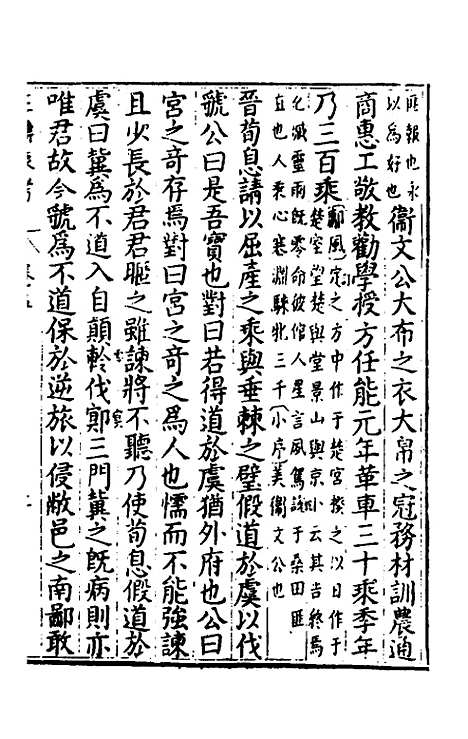 匪報也永
以為好也
衞文公大布之衣大帛之冠務材訓農通
商惠工敬教勸學授方任能元年革車三十乘季年
乃三百乘
鄘風定之方中作于楚宮揆之以日作于
楚室望楚與堂景山與京卜云其吉終焉
允臧靈雨既零命彼倌人星言夙駕說于桑田匪
直也人秉心塞淵騋牝三千小序美衞文公也
晉荀息請以屈產之乘與垂棘之璧假道於虞以伐
虢公曰是吾寶也對曰若得道於虞猶外府也公曰
宮之奇存焉對曰宮之奇之為人也懦而不能強諫
且少長於君君暱之雖諫將不聽乃使荀息假道於
虞曰冀為不道入自顛軨伐鄍三門冀之既病則亦
唯君故今虢為不道保於逆旅以侵敝邑之南鄙敢